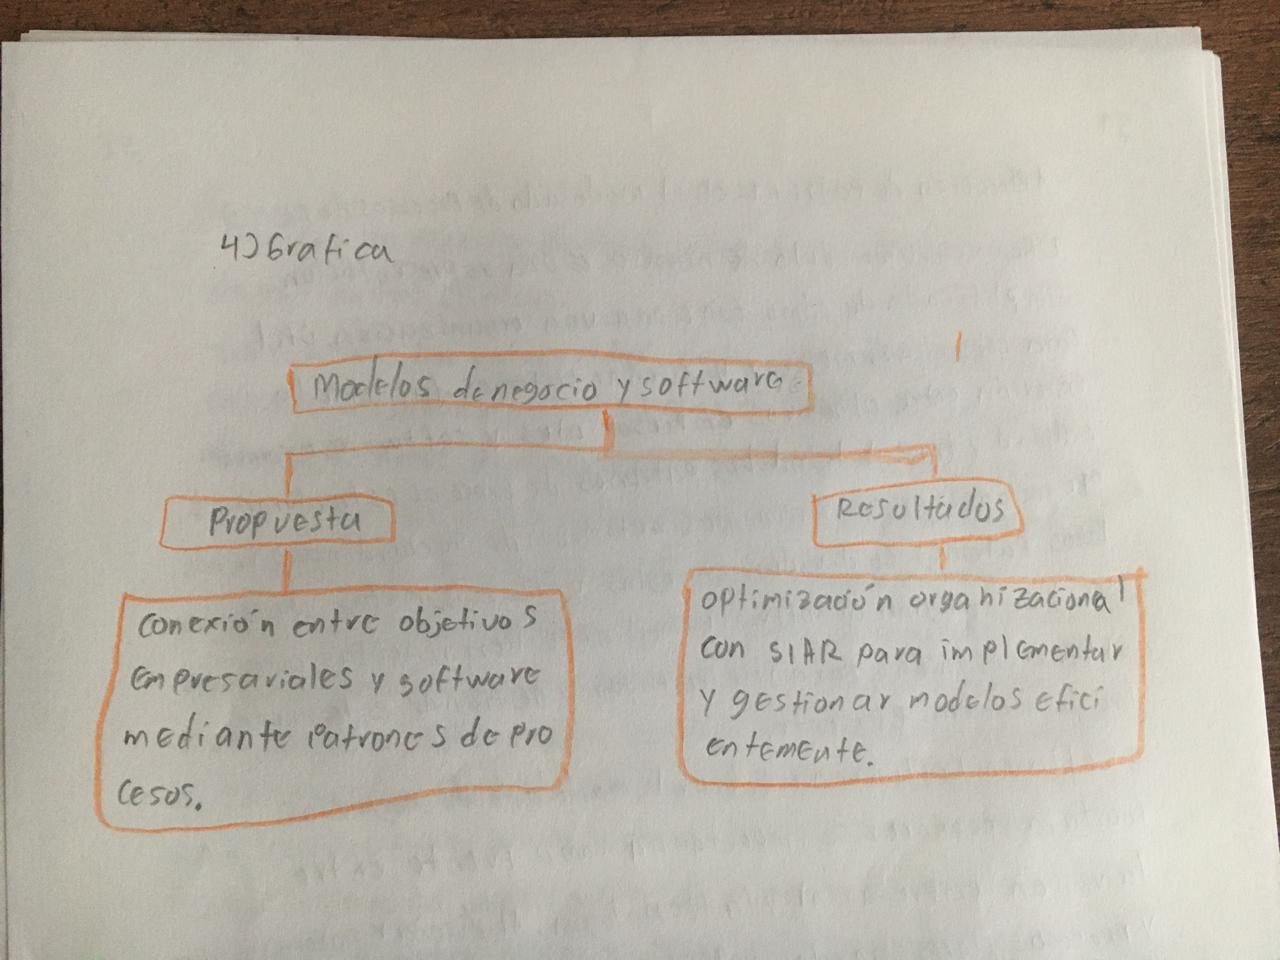 4) Grafica
Modelos de negocio y software
Propuesta
Resultados
Conexión entre objetivos
empresariales y software
mediante Patrones de pro
cesos.
optimización organizacional
con SIAR para implementar
y gestionar modelos efici
entemente.